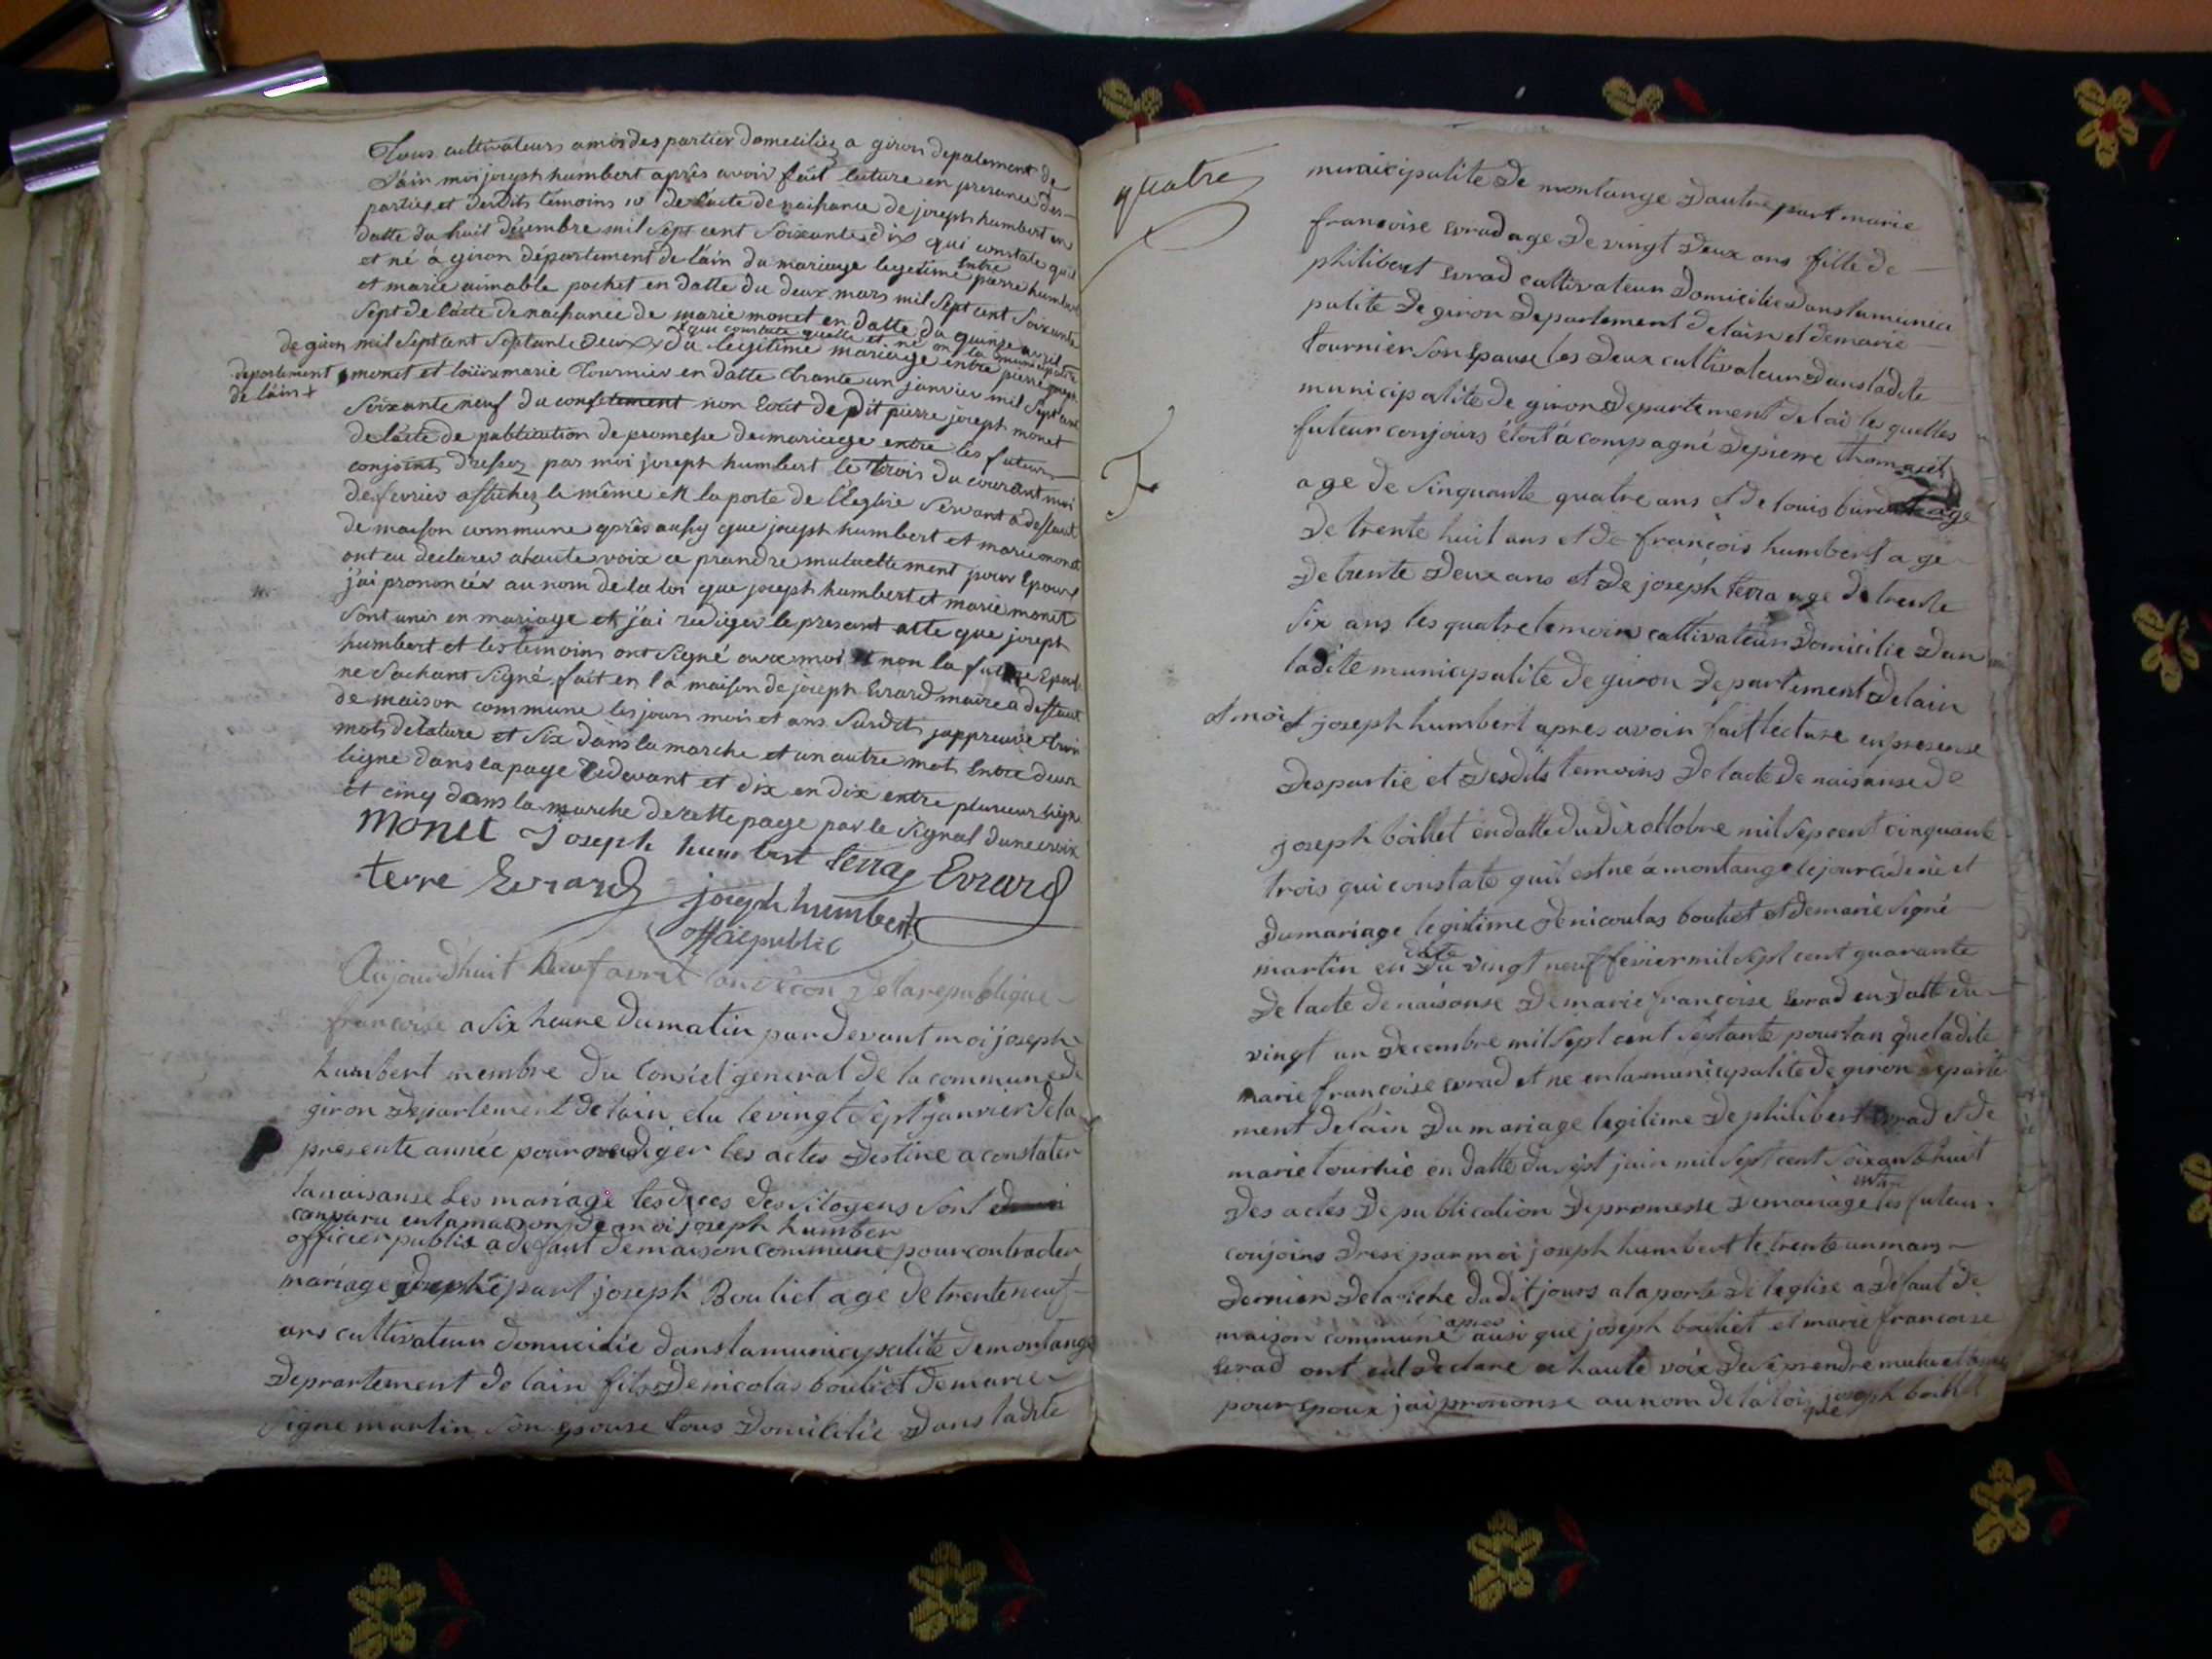 Tous cultivateurs amis des parties domeciliez a giron depatement de
l'ain moi joseph humbert après avoir fait lecture en presance des
parties et desdits témoins 10 de l'acte de naissance de joseph humbert en
datte du huit décembre mil sept cent soixante dix qui constate qu'il
et né à giron département de l'ain du mariage legetime entre pierre humbert
et marie aimable pochet en datte du deux mars mil sept cent soixante
sept de l'acte de naissance de marie monet en datte du quinze avril
de giron mil sept cent septante deux + que constate quelle et né en la municipalité du legitime mariage entre pierre joseph
departement monet et louise marie Tournier en datte trante un janvier mil sept cent
de l'ain +
soixante neuf du consetement non Ecrit de dit pierre joseph monet
de l'acte de publication de promesse de mariage entre les futurs
conjoints dressez par moi joseph humbert le trois du courant moi
de fevrier affichez le même et la porte de l'Eglise servant a deffaut
de maison commune après aussy que joseph humbert et marie monet
ont eu declarer a haute voix ce prandre mutuellement pour Epoux
j'ai prononcéz au nom de la loi que joseph humbert et marie monet
sont unis en mariage et j'ai rediger le presant atte que joseph
humbert et les temoins ont signé avec moi et non la future Epouse
ne sachant signé fait en la maison de joseph Evrard maire a deffaut
de maison commune les jours mois et ans susdits j'appreuve trois
mots de rature et six dans la marche et un autre mot Entre deux
ligne dans la page cidevant et dix en dix entre plusieur ligne
et cinq dans la marche de cette page par le signal dune croix
monet joseph humbert terraz Evrard
terre Evrard joseph humbert
off cie public
Aujourdhuit neuf avril l'an secon de la republique
francoise a six heure du matin par devant moi joseph
humbert membre du conseil general de la commune de
giron departement de lain elu le vingt sept janvier de la
presente année pour rediger les actes destine a constater
la naisanse les mariage les deces des sitoyens sont
comparu en la maison de moi joseph humber
officier public a defaut de maison commune pour contracter
mariage part joseph Bouliet age de trente neuf
ans cultivateur domicilie dans la municipalite de montange
deprartement de lain fils de nicolas bouliet de marie
signe martin son epouse tous domicilie dans ladite
quatre
municipalite de montange d'autre part marie
francoise evrad age de vingt deux ans fille de
philibert evrad cultivateur domicilie dans la munici
palite de giron departement de lain et de marie
tournier son epouse les deux cultivateur dans ladite
municipalite de giron departement de lai les quelles
futeur conjoins étoit a compagné de pierre thomaset
age de sinquante quatre ans et de louis age
de trente huit ans et de françois humbert age
de trente deux ans et de joseph terra age de trente
six ans les quatre temoin cultivateur domicilie dan
ladite municipalite de giron departement de lain
et moi joseph humbert apres avoir fait lecture en presense
des partie et desdits temoins de lacte de naisanse de
joseph boiliet en datte du dix octobre mil sep cent cinquante
trois qui constate quil est ne a montange le jour et
du mariage legitime de nicoulas bouliet et de marie signe
martin en date du vingt neuf fevier mil sept cent quarante
de lacte de naisanse de marie francoise evrad en datte du
vingt un decembre mil sept cent septante pourtan que ladite
marie francoise evrad et ne en la municipalite de giron departe
ment de lain du mariage legitime de philibert evrad et de
marie tournie en datte du sept juin mil sept cent soixante huit
des actes de publication de promesse de mariage entre les futeur
conjoins drese par moi joseph humbert le trente un mars
dernier dudit jours a la porte de leglise a defaut de
maison commune apres ausi que joseph bouliet et marie francoise
evrad ont declare a haute voix de se prendre mutuellement
pour epoux jai prononse au nom de la loi que joseph boiliet